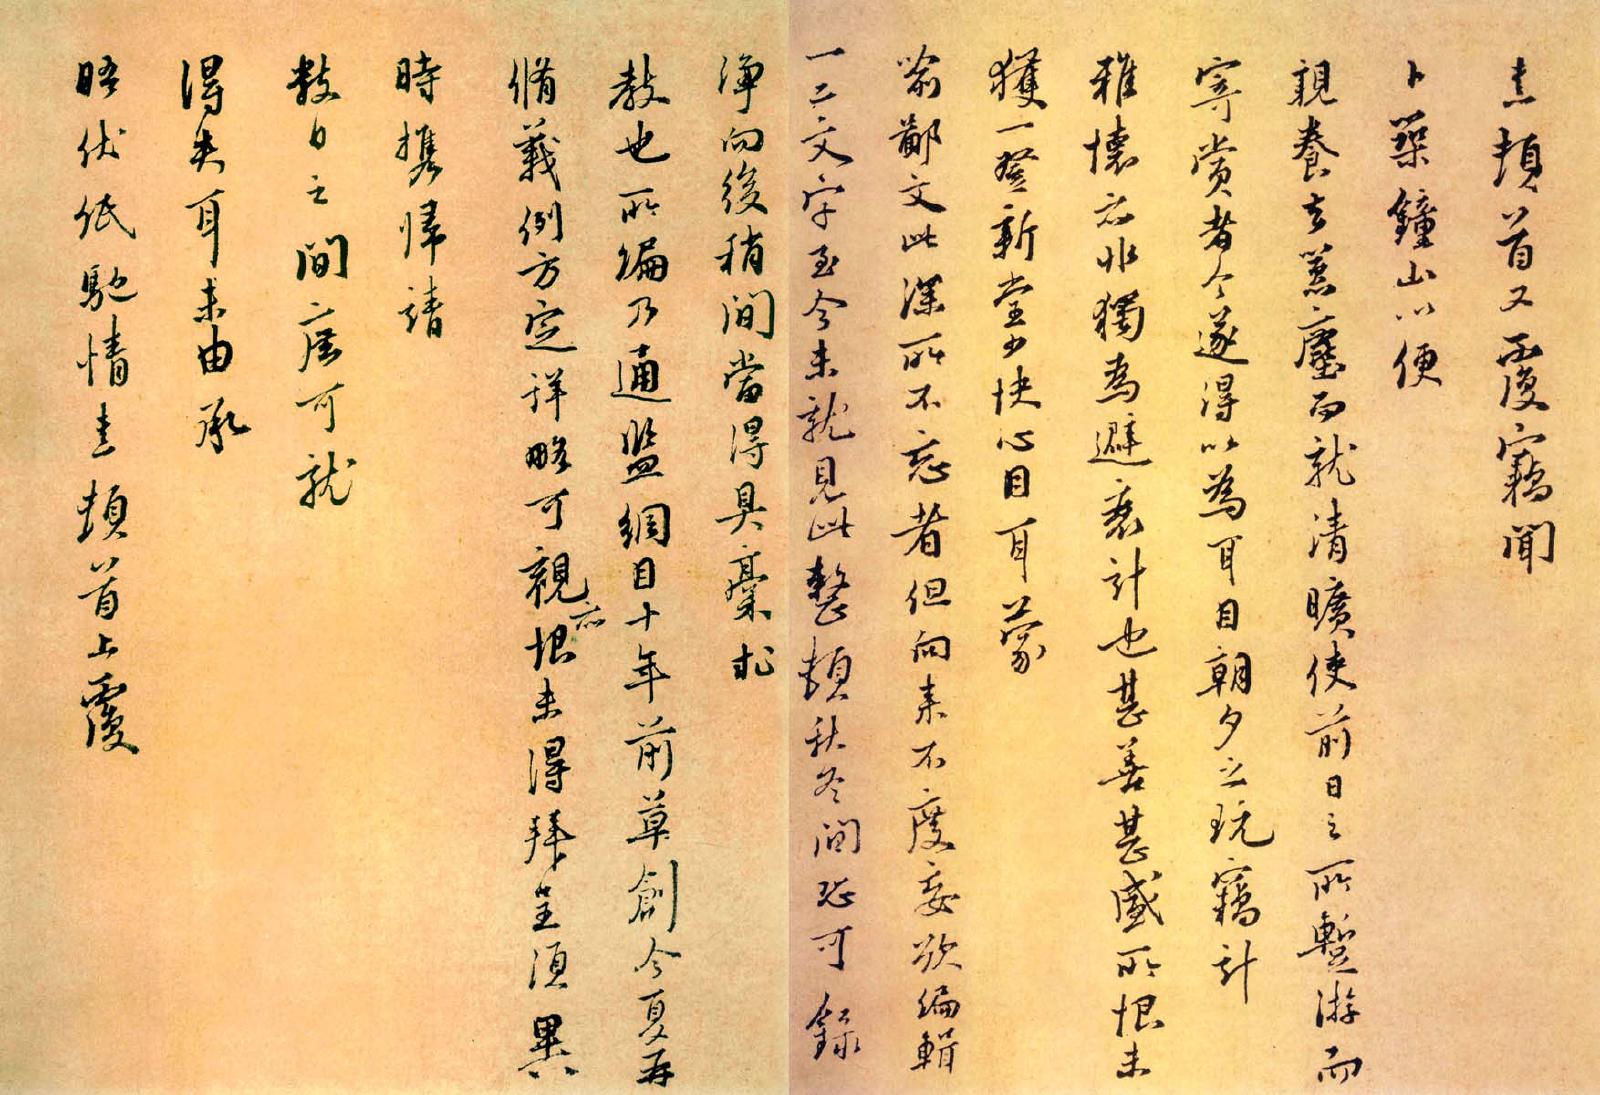 熹頓首又覆竊聞
卜築鐘山以便
親養去囂塵而就清曠使前日之所暫游而
寄賞者今遂得以為耳目朝夕之玩竊計
雅懷亦非獨為避衰計也甚善甚盛所恨未
獲一登新堂少快心目耳蒙
喻鄙文此深所不忘者但向来不度妄欲編輯
一二文字至今未就見此整頓秋冬間恐可錄
淨向後稍間當得具藁求
教也所編乃通鑑綱目十年前草創今夏再
脩義例方定詳略可觀亦恨未得拜呈須異
時攜歸請
教日之間庶可就
得失耳未由承
晤伏紙馳情熹頓首上覆